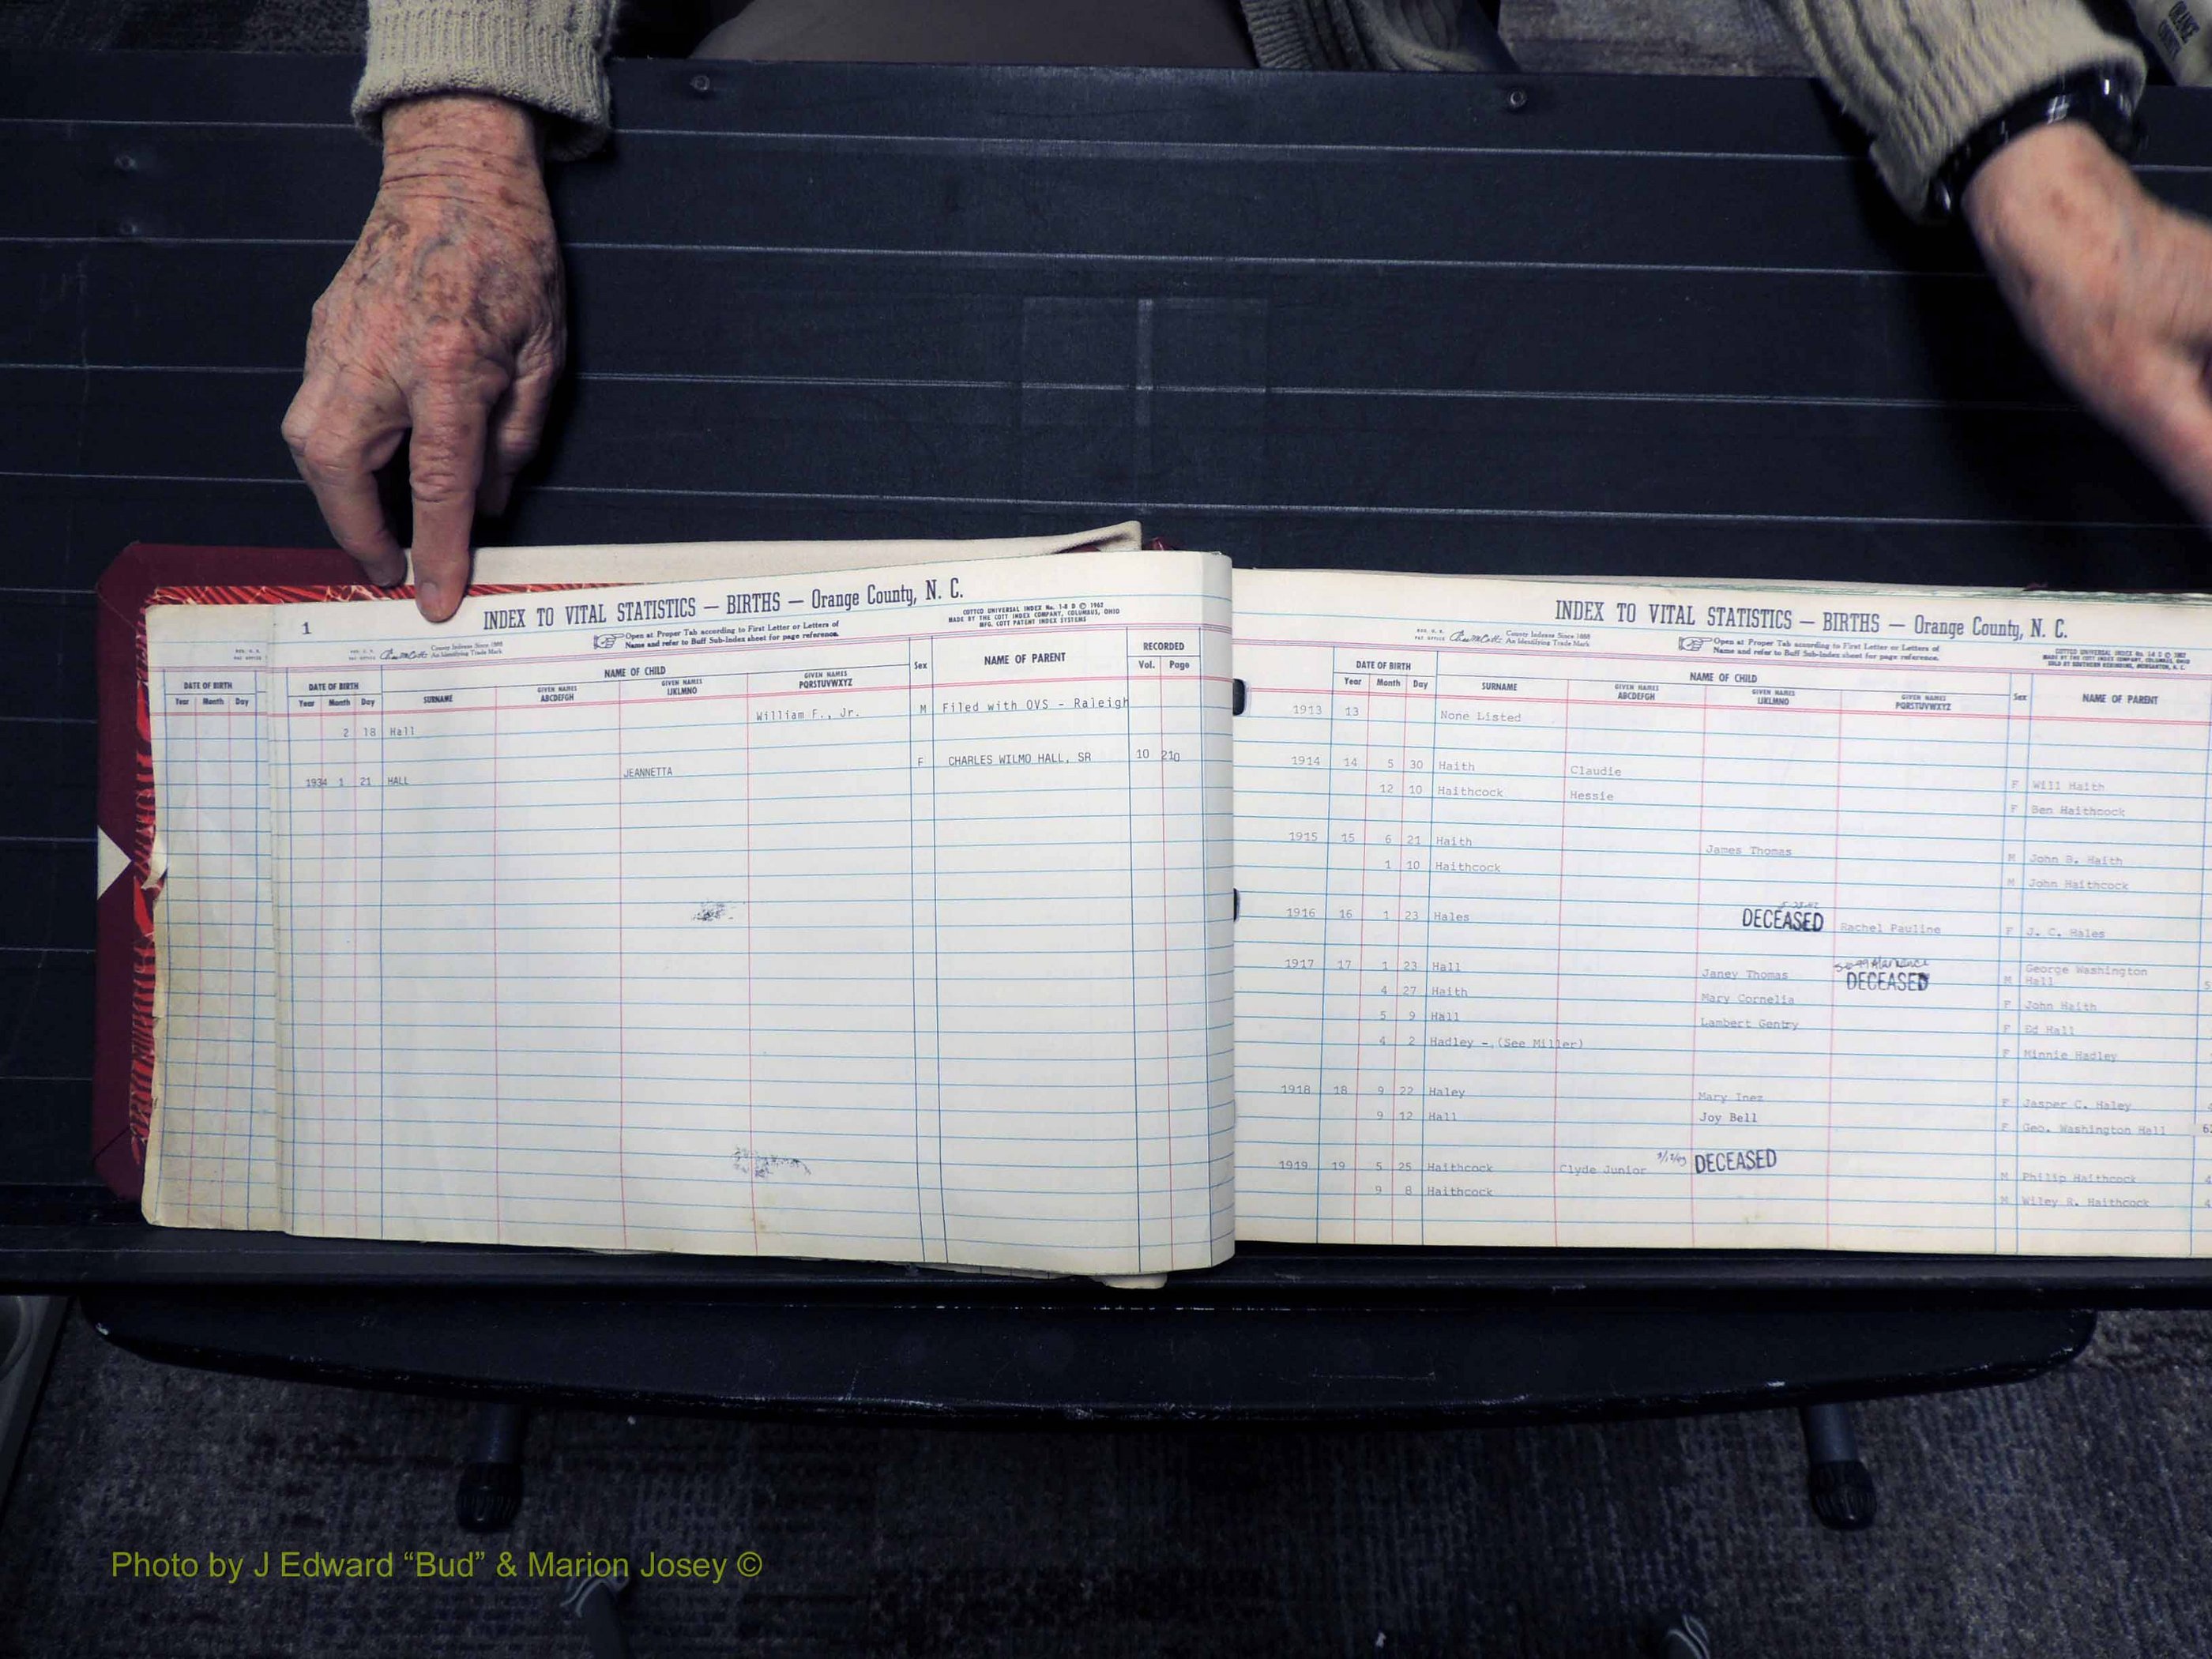 DATE OF BIRTH
Year Month Day
1
INDEX TO VITAL STATISTICS — BIRTHS — Orange County, N. C.
County Indexes Since 1888
An Identifying Trade Mark
Open at Proper Tab according to First Letter or Letters of
Name and refer to Buff Sub-Index sheet for page reference.
COTTCO UNIVERSAL INDEX No. 1-8 D © 1962
MADE BY THE COTT INDEX COMPANY, COLUMBUS, OHIO
MFG. COTT PATENT INDEX SYSTEMS
DATE OF BIRTH NAME OF CHILD Sex NAME OF PARENT RECORDED
Year Month Day SURNAME GIVEN NAMES ABCDEFGH GIVEN NAMES IJKLMNO GIVEN NAMES PQRSTUVWXYZ Vol. Page
2 18 Hall William F., Jr. M Filed with OVS - Raleigh
1934 1 21 HALL JEANNETTA F CHARLES WILMO HALL, SR 10 210
INDEX TO VITAL STATISTICS — BIRTHS — Orange County, N. C.
County Indexes Since 1888
An Identifying Trade Mark
Open at Proper Tab according to First Letter or Letters of
Name and refer to Buff Sub-Index sheet for page reference.
DATE OF BIRTH NAME OF CHILD Sex NAME OF PARENT
Year Month Day SURNAME GIVEN NAMES ABCDEFGH GIVEN NAMES IJKLMNO GIVEN NAMES PQRSTUVWXYZ
1913 13 None Listed
1914 14 5 30 Haith Claudie F Will Haith
12 10 Haithcock Hessie F Ben Haithcock
1915 15 6 21 Haith James Thomas M John B. Haith
1 10 Haithcock M John Haithcock
1916 16 1 23 Hales DECEASED Rachel Pauline F J. C. Hales
1917 17 1 23 Hall Janey Thomas DECEASED M George Washington Hall
4 27 Haith Mary Cornelia F John Haith
5 9 Hall Lambert Gentry F Ed Hall
4 2 Hadley - (See Miller) F Minnie Hadley
1918 18 9 22 Haley Mary Inez F Jasper C. Haley
9 12 Hall Joy Bell F Geo. Washington Hall
1919 19 5 25 Haithcock Clyde Junior DECEASED M Philip Haithcock
9 8 Haithcock M Wiley R. Haithcock
Photo by J Edward “Bud” & Marion Josey ©